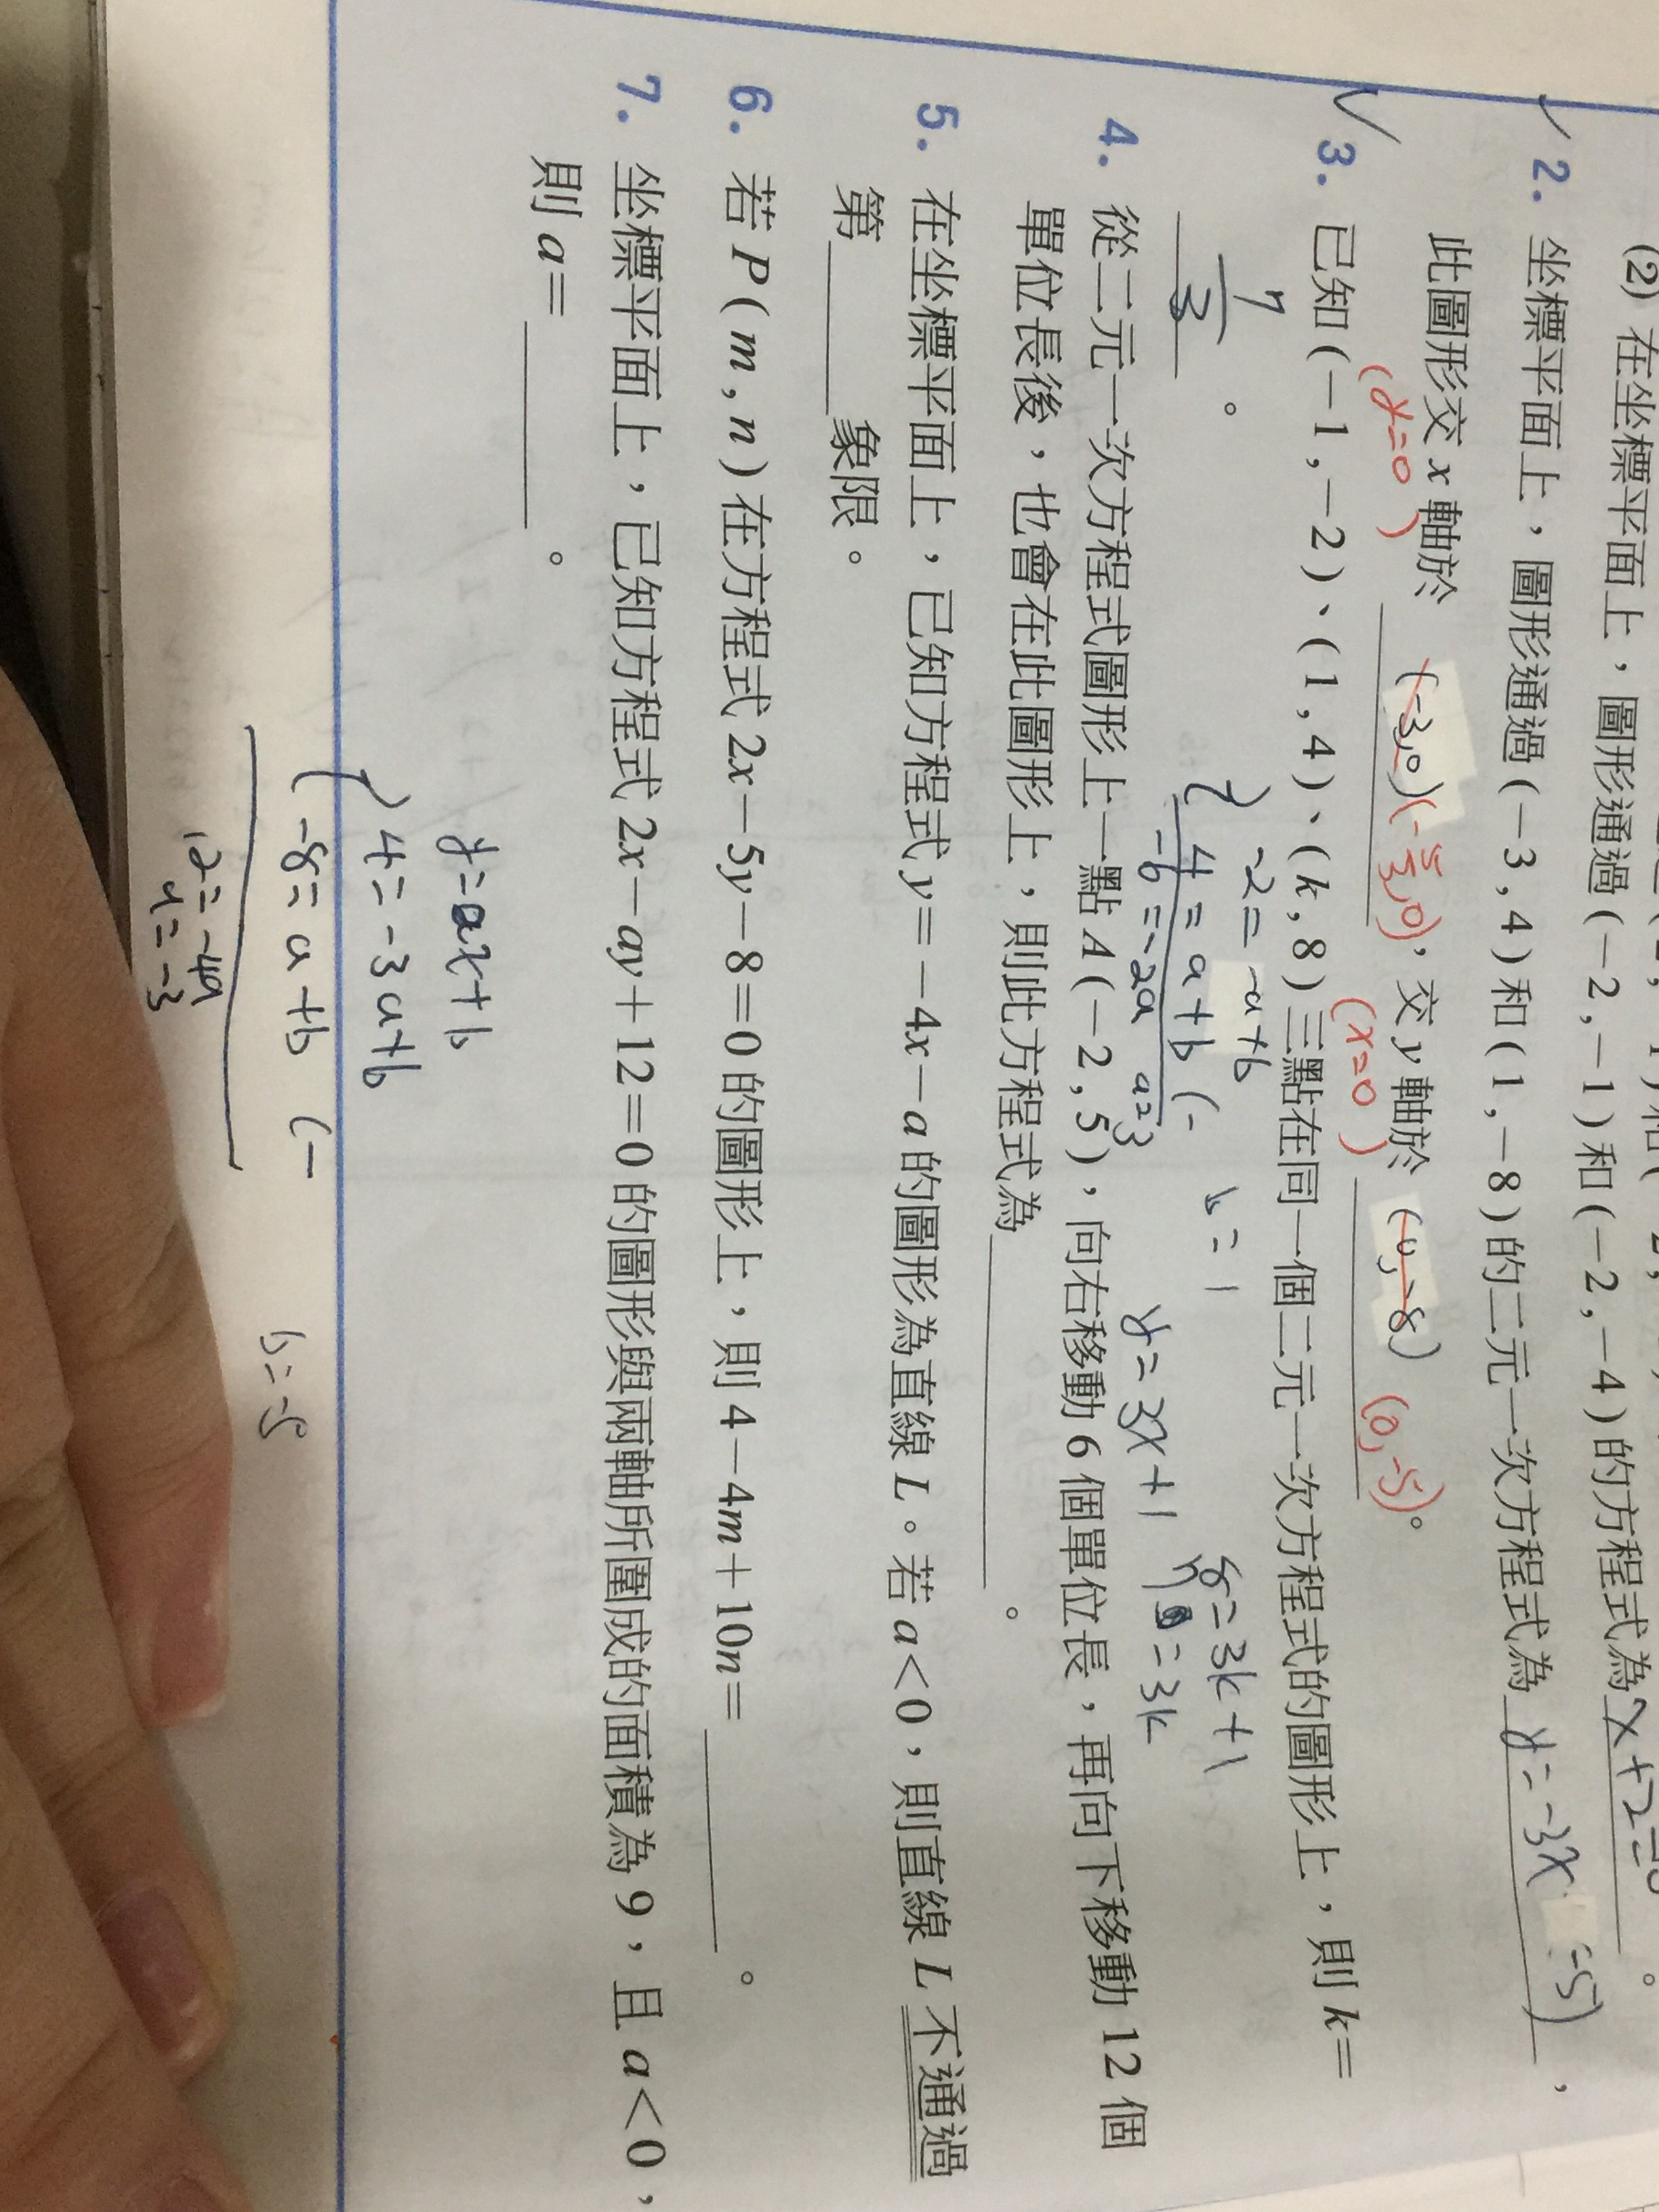 (2) 在坐標平面上，圖形通過(－2,－1)和(－2,－4)的方程式為x+2=0。
2. 坐標平面上，圖形通過(－3,4)和(1,－8)的二元一次方程式為y=-3x-5)，
此圖形交x軸於(-3,0)(-5/3,0)，交y軸於(0,-8)(0,-5)。
(y=0)
(x=0)
3. 已知(－1,－2)、(1,4)、(k,8)三點在同一個二元一次方程式的圖形上，則k=
7/3。
-2=-a+b
4=a+b (-
-6=-2a a=3
b=1
y=3x+1
8=3k+1
7=3k
4. 從二元一次方程式圖形上一點A(－2,5)，向右移動6個單位長，再向下移動12個
單位長後，也會在此圖形上，則此方程式為。
5. 在坐標平面上，已知方程式y=－4x－a的圖形為直線L。若a<0，則直線L不通過
第象限。
6. 若P(m,n)在方程式2x－5y－8=0的圖形上，則4－4m＋10n=。
7. 坐標平面上，已知方程式2x－ay＋12=0的圖形與兩軸所圍成的面積為9，且a<0，
則a=。
y=ax+b
4=-3a+b
-8=a+b (-
12=-4a
a=-3
b=-5